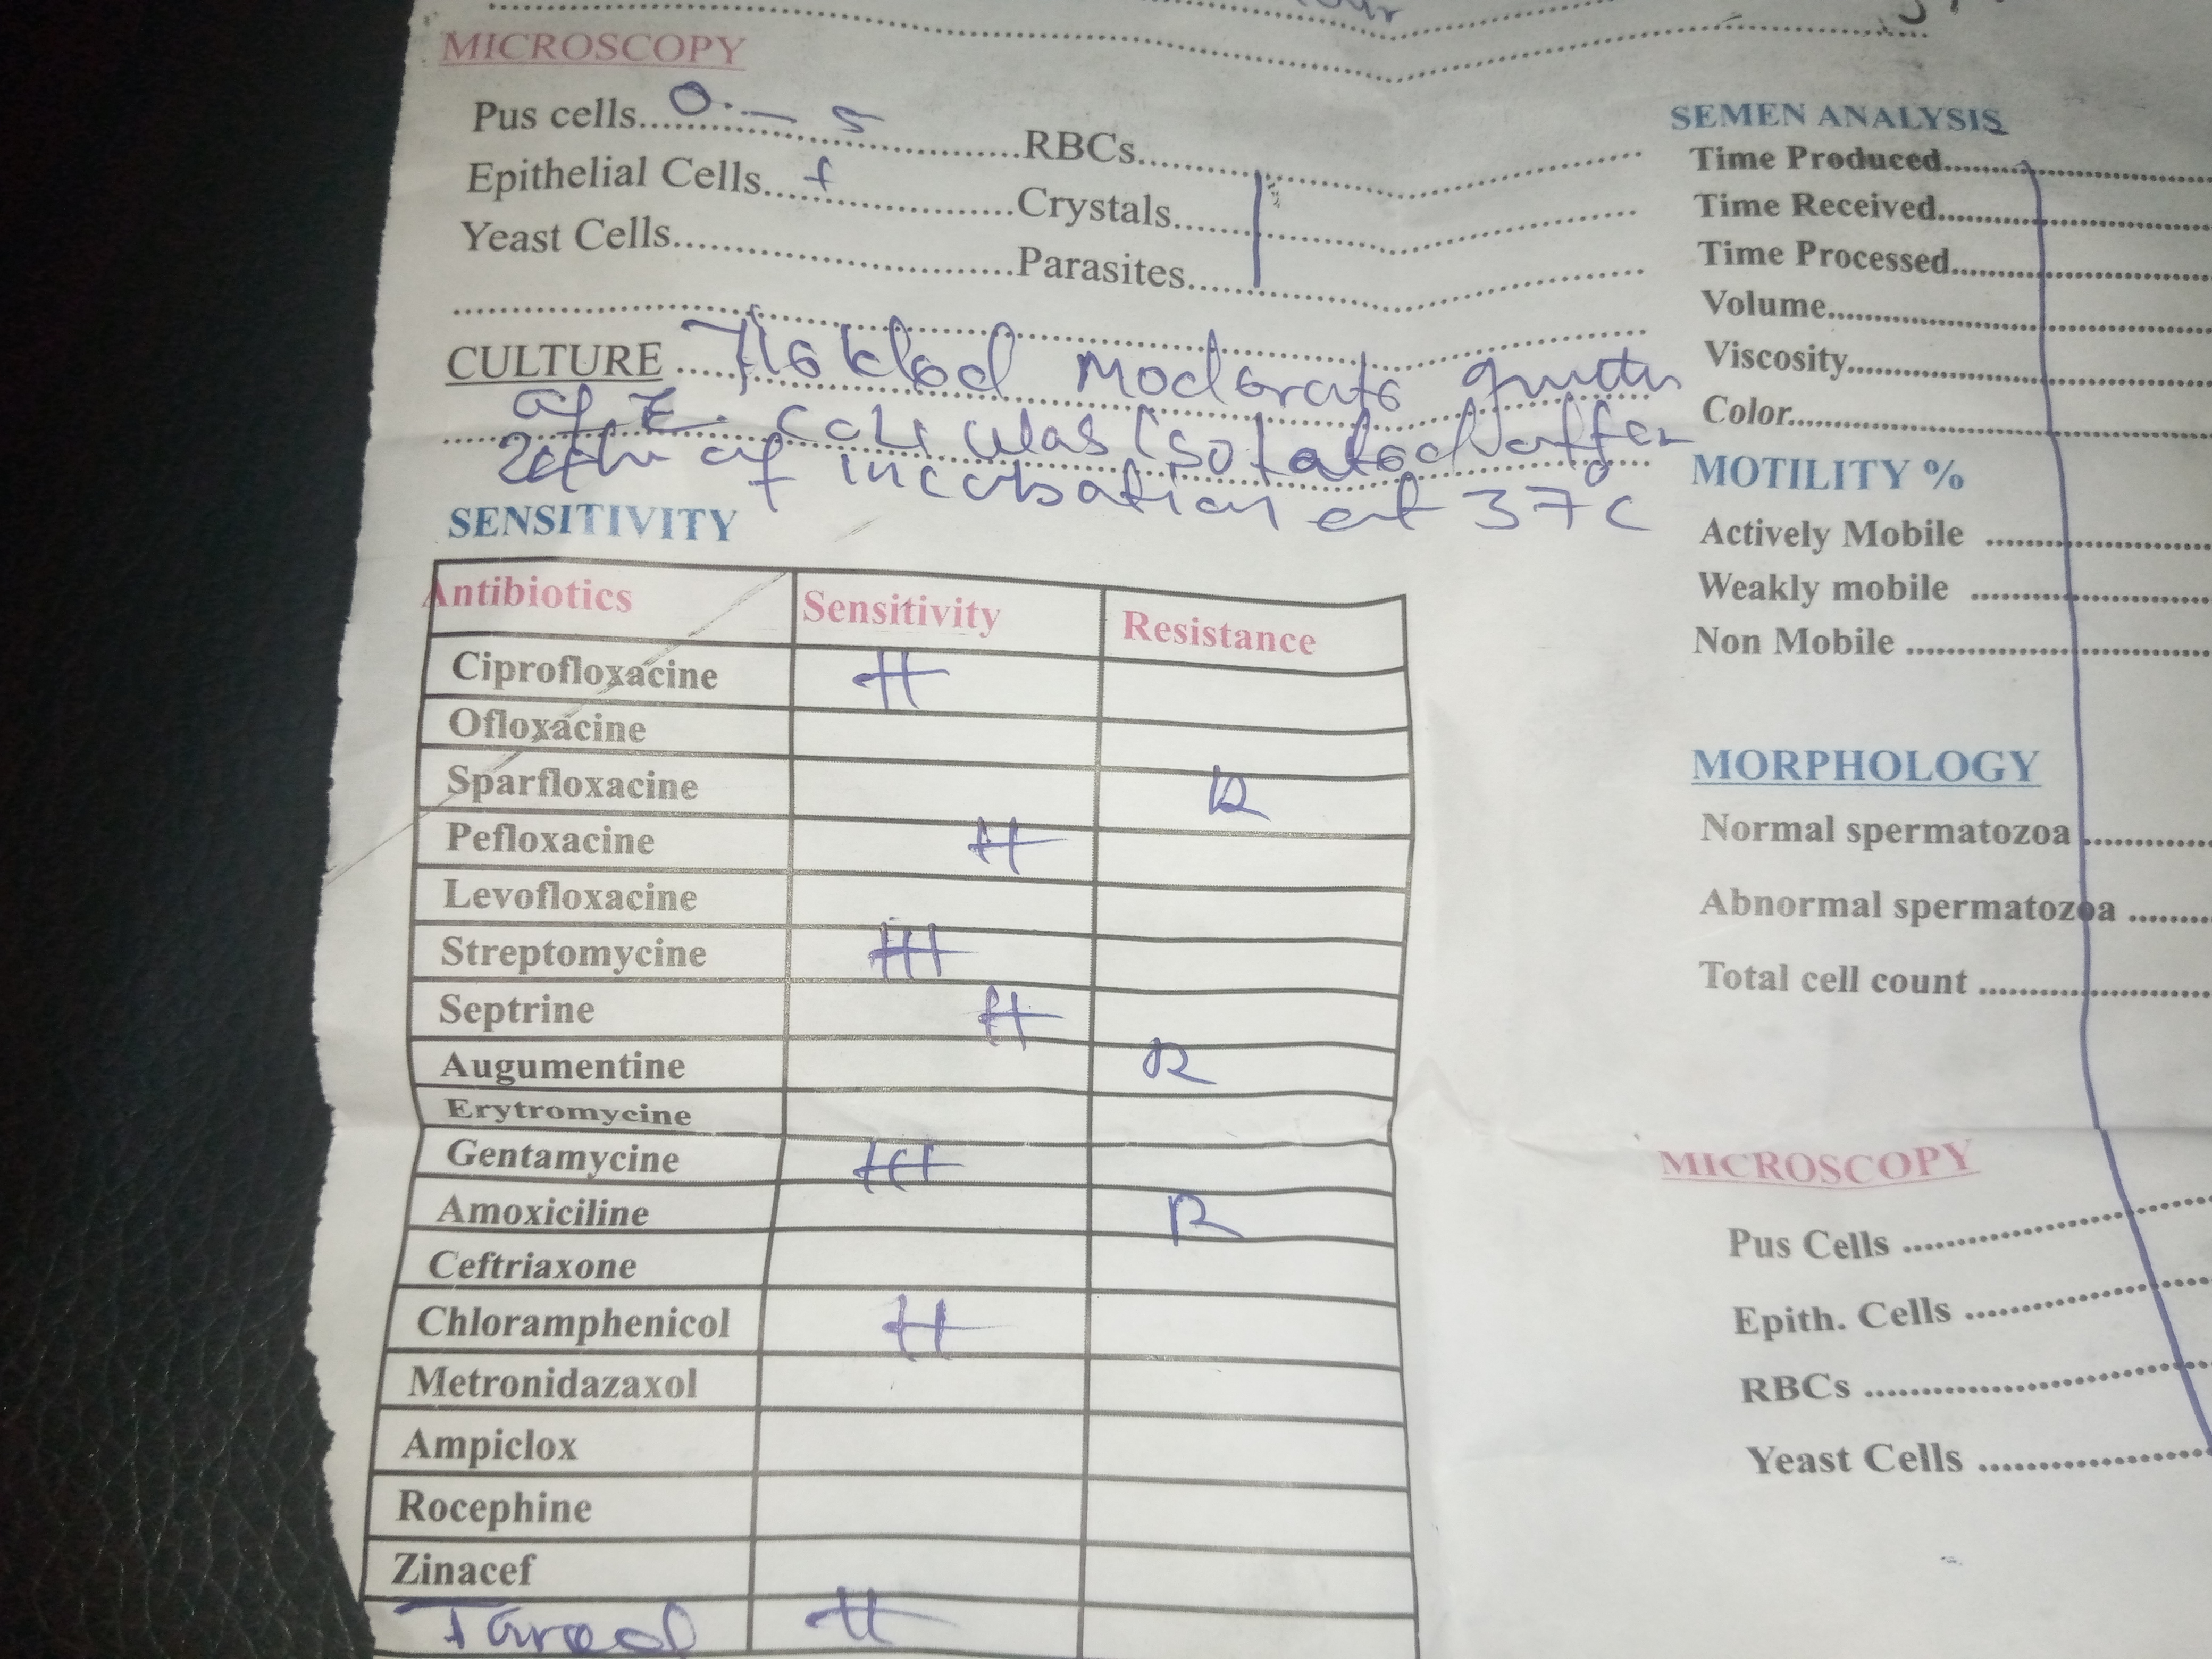 MICROSCOPY
Pus cells...0 — 5...RBCs...
Epithelial Cells...+...Crystals...
Yeast Cells...Parasites...
CULTURE ... Moderate growth
of E. coli was isolated after
24hr of incubation at 37c
SENSITIVITY
Antibiotics Sensitivity Resistance
Ciprofloxacine ++
Ofloxacine
Sparfloxacine R
Pefloxacine ++
Levofloxacine
Streptomycine +++
Septrine ++
Augumentine R
Erytromycine
Gentamycine +++
Amoxiciline R
Ceftriaxone
Chloramphenicol ++
Metronidazaxol
Ampiclox
Rocephine
Zinacef
++
SEMEN ANALYSIS
Time Produced...
Time Received...
Time Processed...
Volume...
Viscosity...
Color...
MOTILITY %
Actively Mobile ...
Weakly mobile ...
Non Mobile ...
MORPHOLOGY
Normal spermatozoa ...
Abnormal spermatozoa ...
Total cell count ...
MICROSCOPY
Pus Cells ...
Epith. Cells ...
RBCs ...
Yeast Cells ...